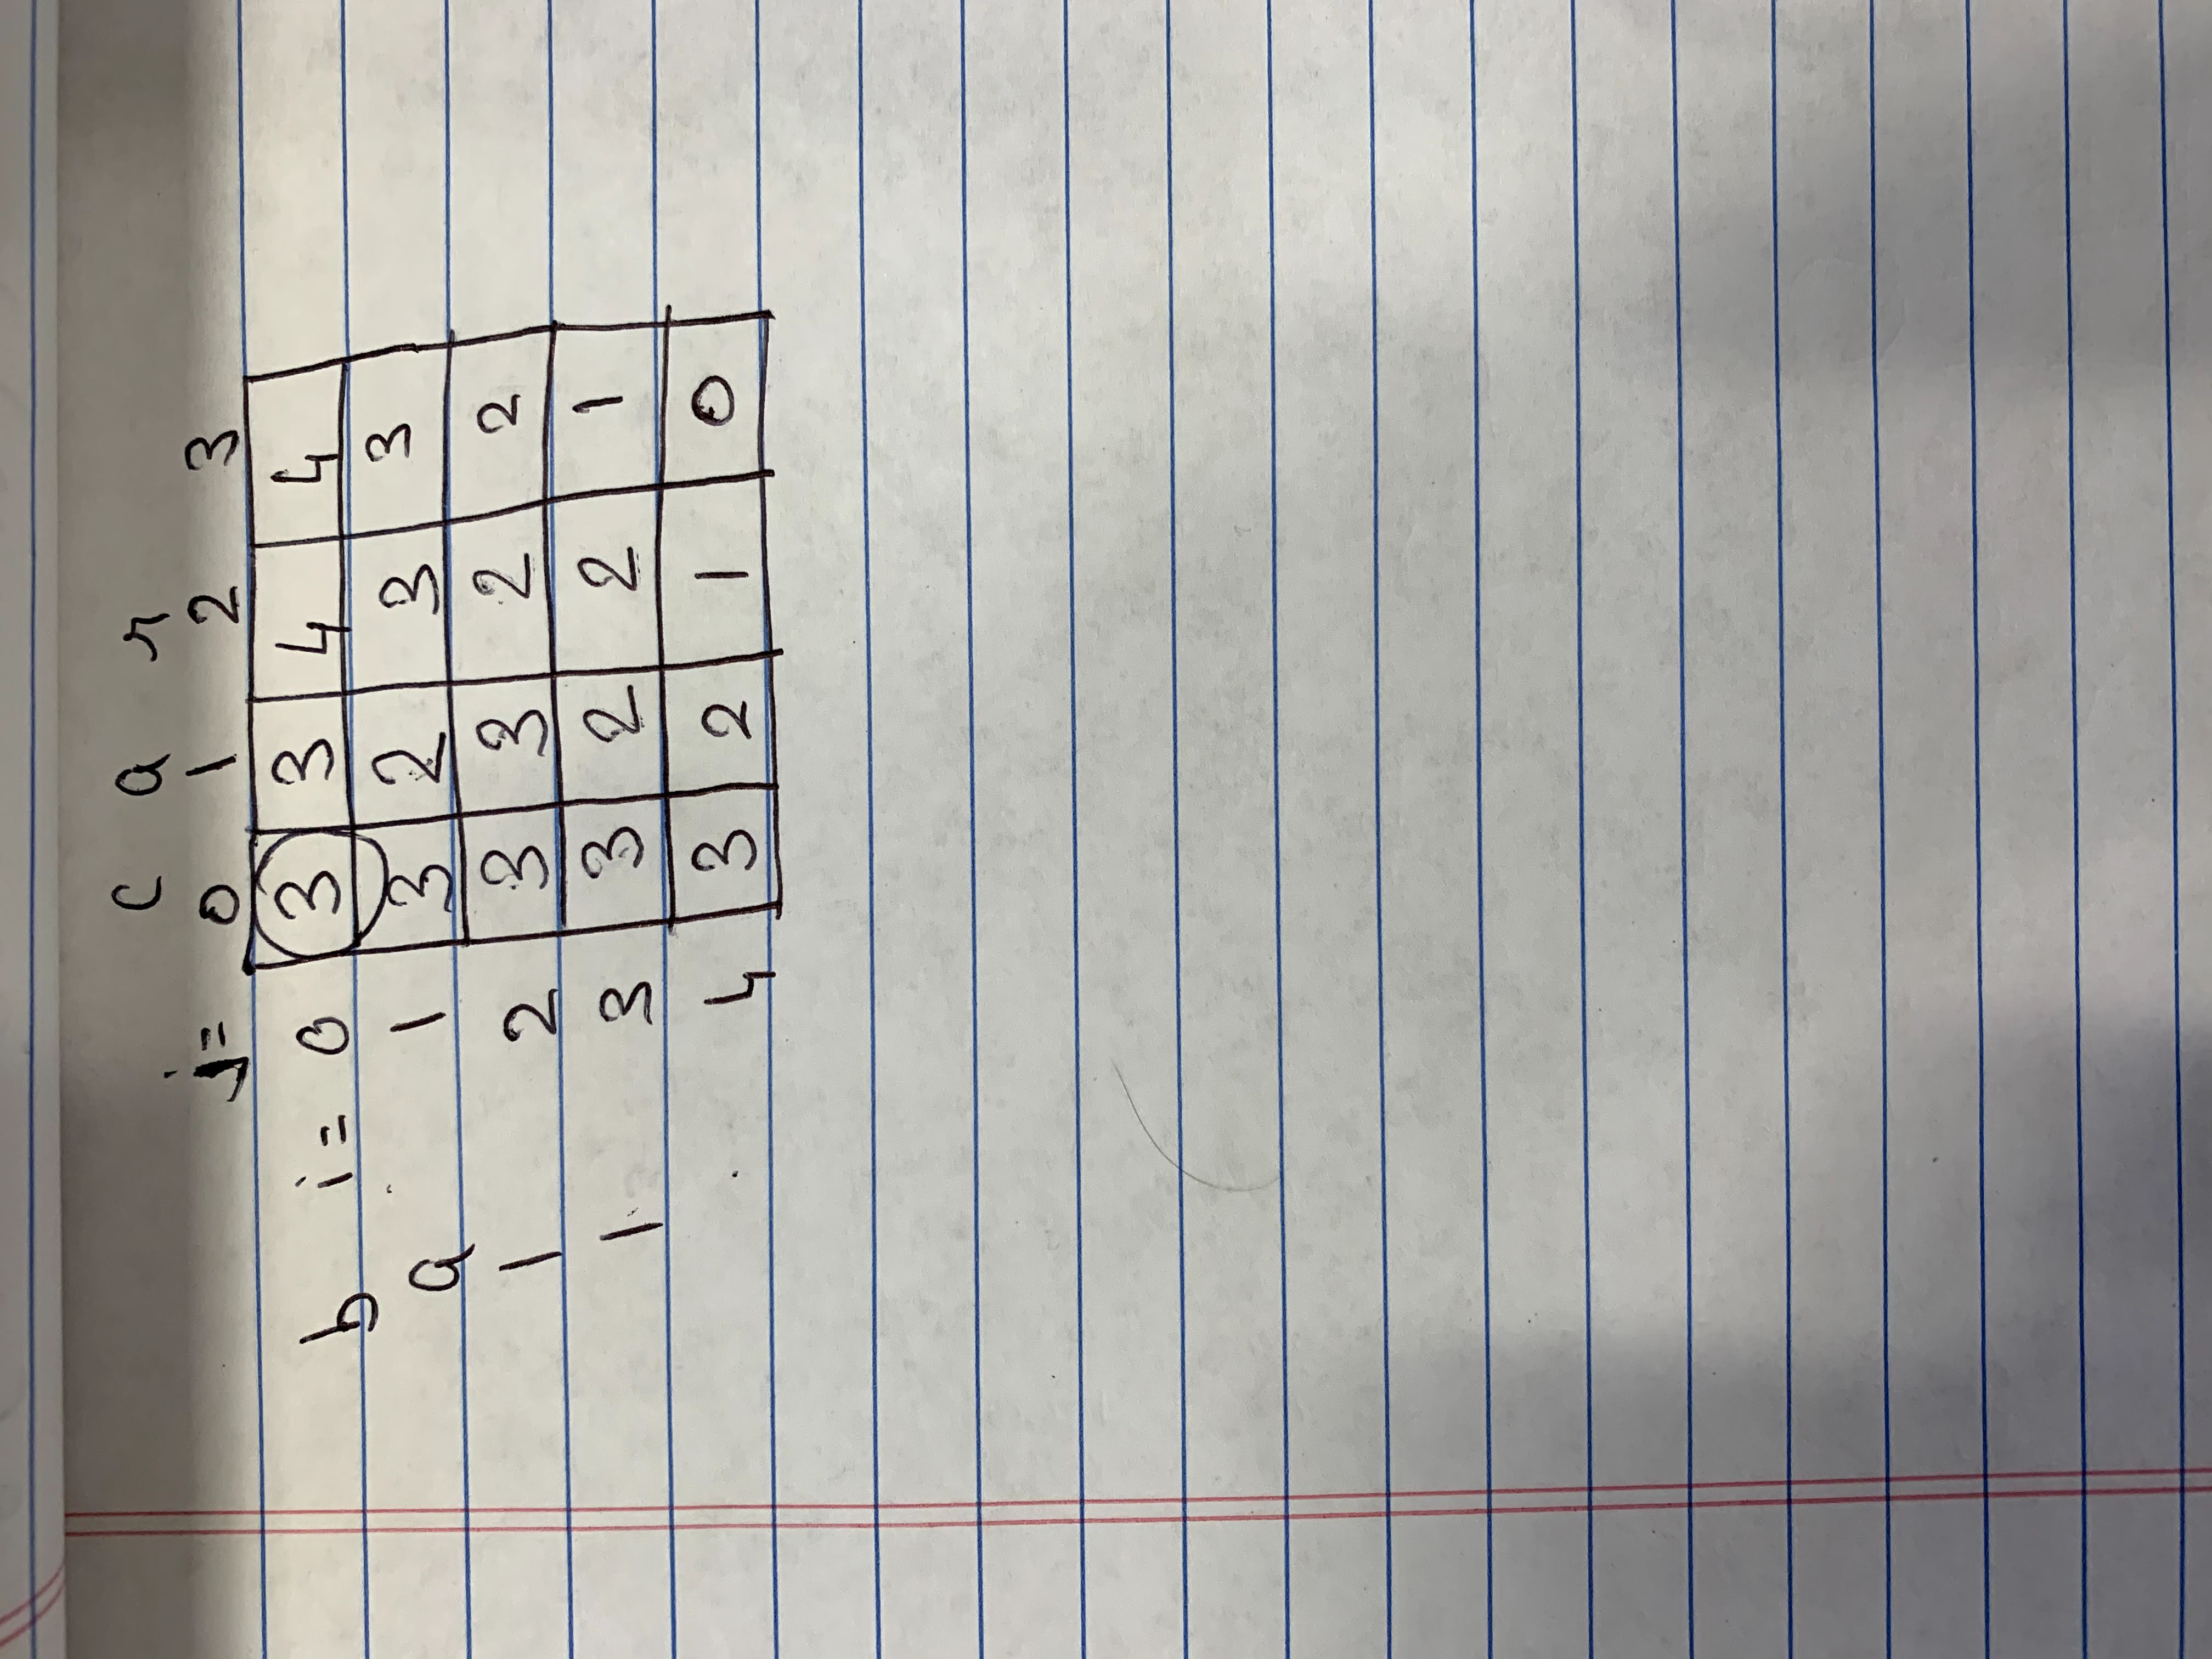 c a r
j= 0 1 2 3
b i = 0 3 3 4 4
a 1 3 2 3 3
l 2 3 3 2 2
l 3 3 2 2 1
4 3 2 1 0